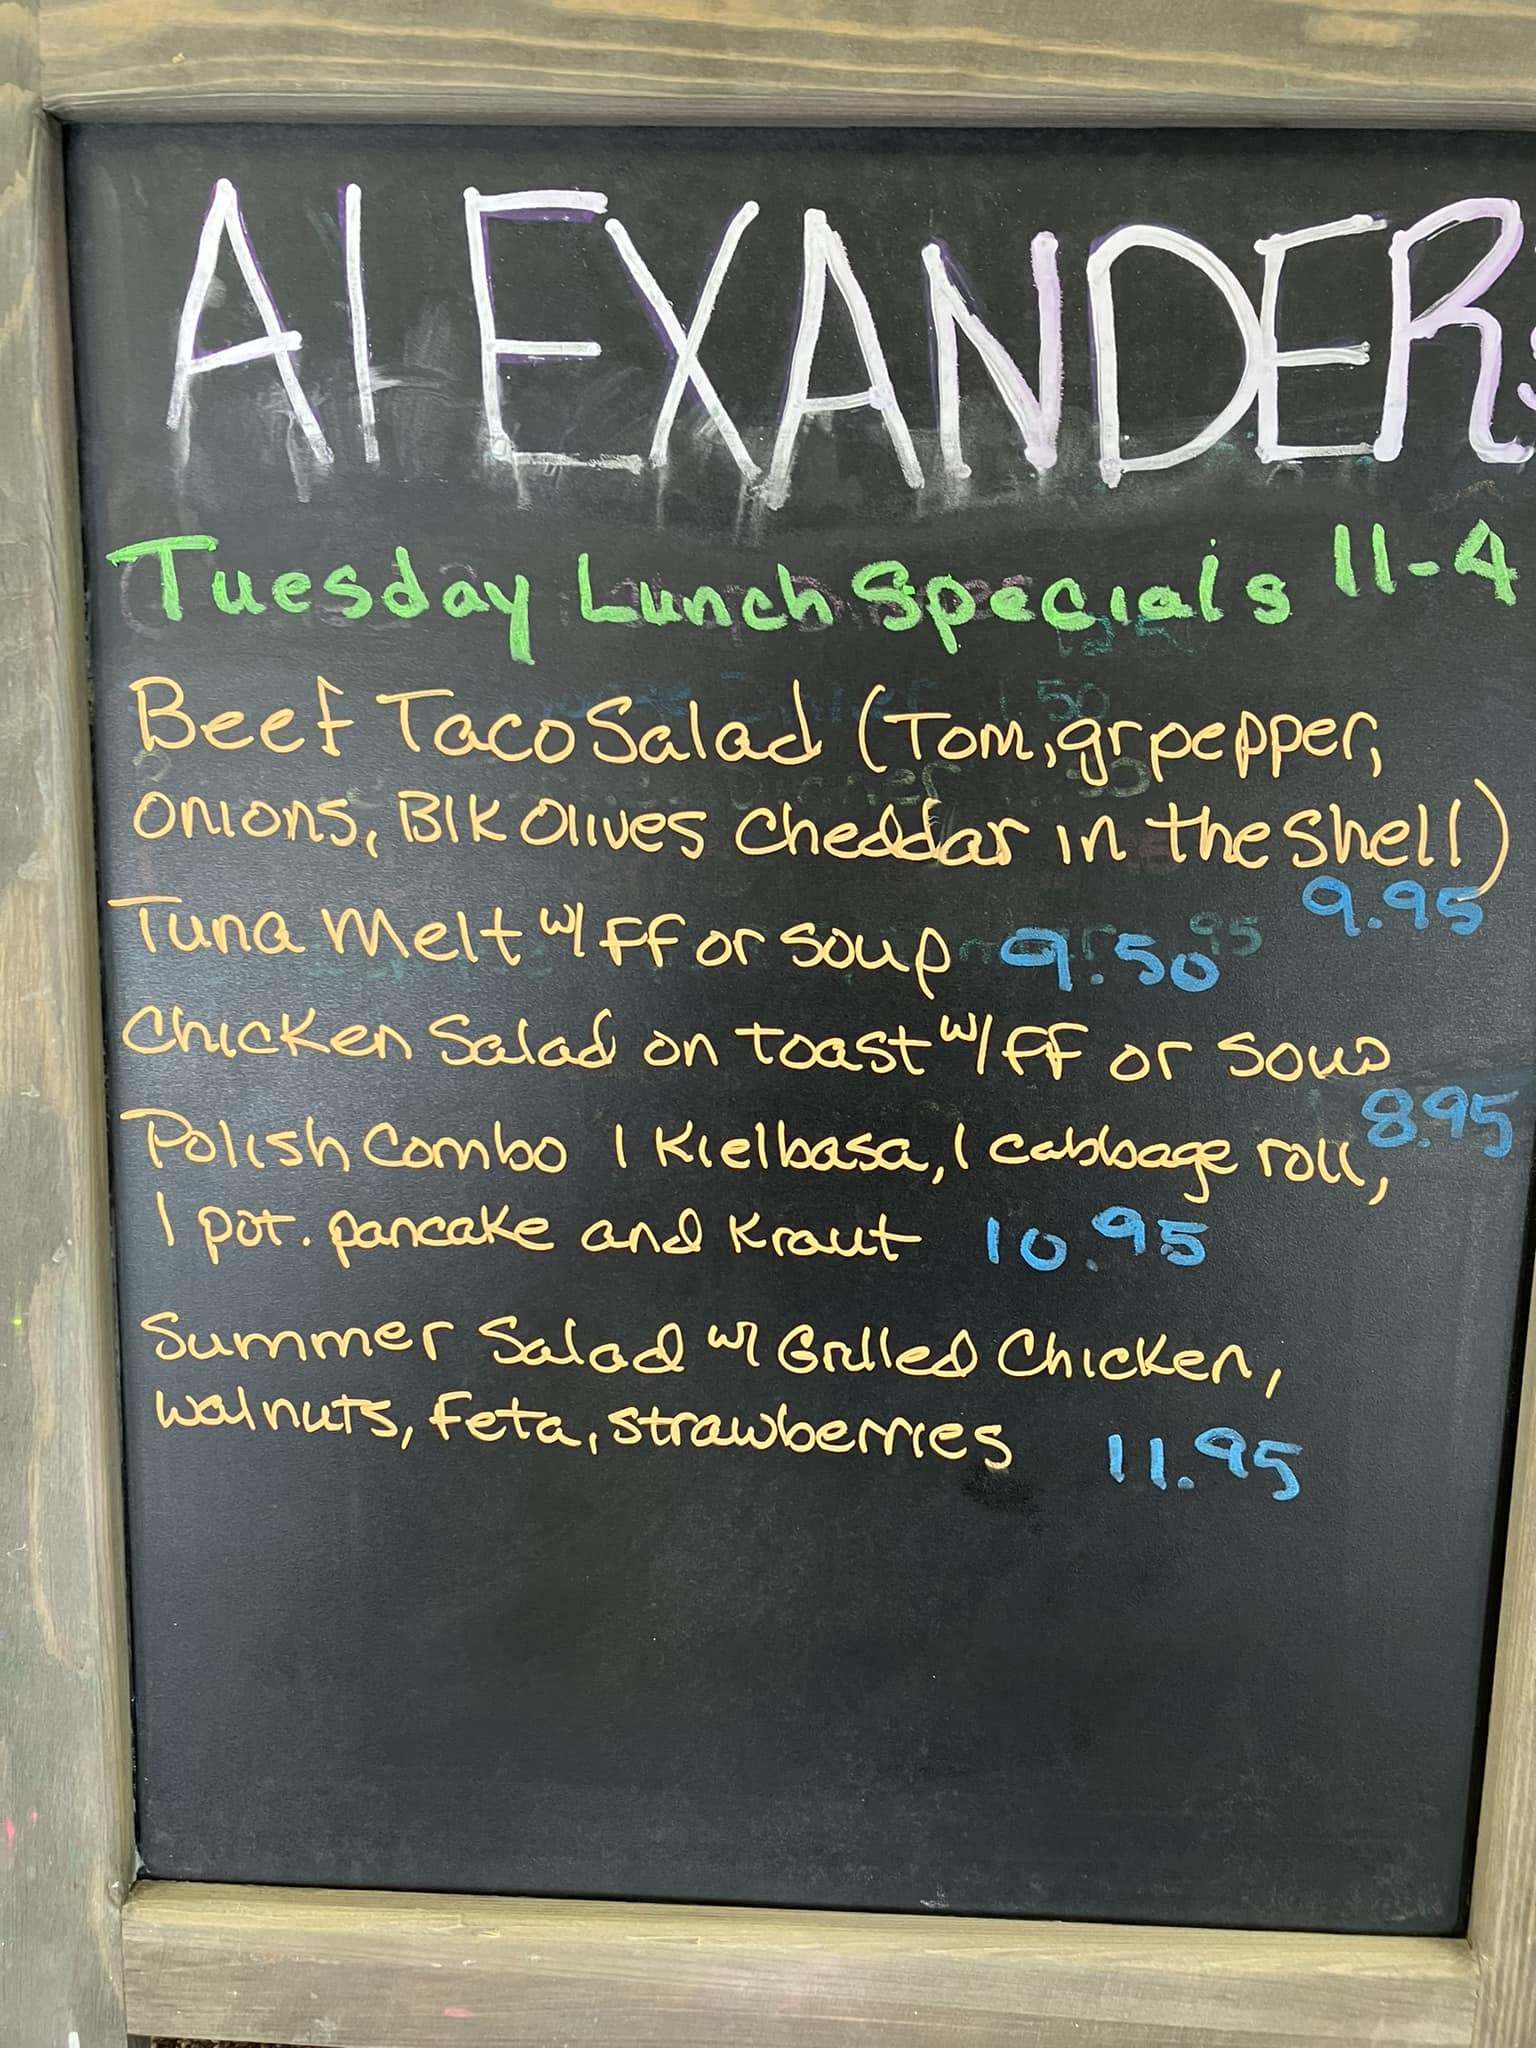 ALEXANDER'S
Tuesday Lunch Specials 11-4
Beef Taco Salad (Tom, gr pepper,
onions, Blk Olives cheddar in the shell)
9.95
Tuna melt w/ FF or soup 9.50
Chicken Salad on toast w/ FF or soup
8.95
Polish Combo 1 Kielbasa, 1 cabbage roll,
1 pot. pancake and Kraut 10.95
Summer Salad w/ Grilled Chicken,
walnuts, Feta, strawberries 11.95